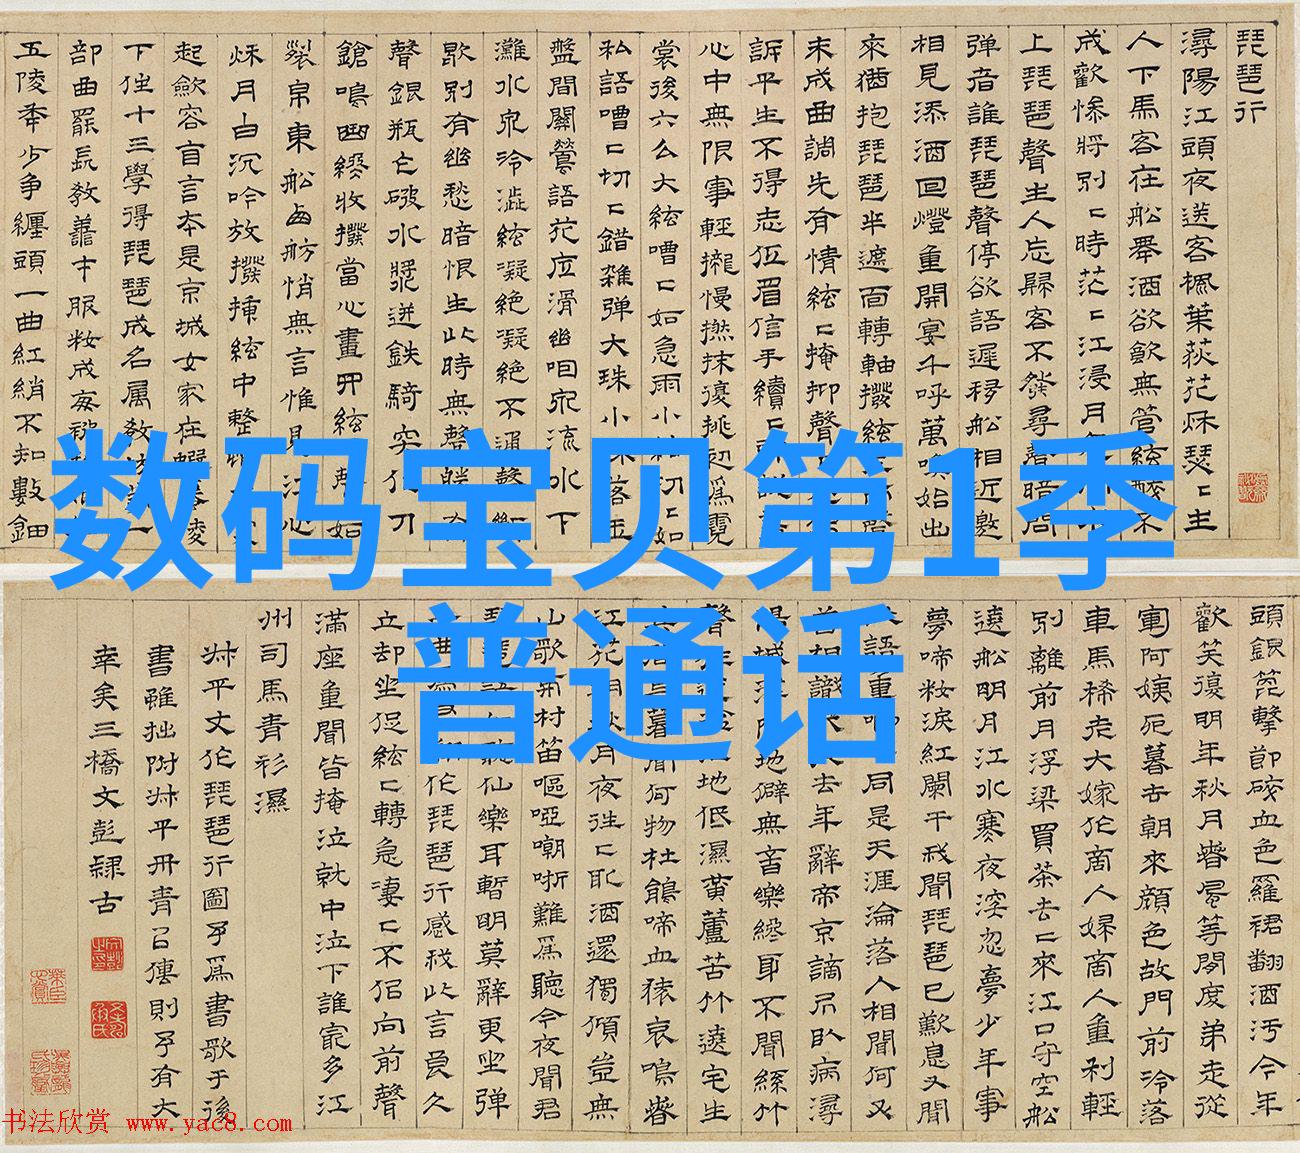 琵琶行
潯陽江頭夜送客楓葉荻花秋瑟〻主
人下馬客在船舉酒欲飲無管絃醉不
成歡慘將別〻時茫〻江浸月
上琵琶聲主人忘歸客不發尋聲暗問
彈者誰琵琶聲停欲語遲移船相近邀
相見添酒回燈重開宴千呼萬喚始出
來猶抱琵琶半遮面轉軸撥絃
未成曲調先有情絃〻掩抑聲
訴平生不得志低眉信手續〻
心中無限事輕攏慢撚抹復挑初爲霓
裳後六么大絃嘈〻如急雨小絃切〻如
私語嘈〻切〻錯雜弹大珠小珠落玉
盤間關鶯語花底滑幽咽泉流水下
灘水泉冷澁絃凝絕凝絕不通聲漸
歇別有幽愁暗恨生此時無聲勝有
聲銀瓶乍破水漿迸鉄騎突出刀
鎗鳴曲終收撥當心畫四絃一聲如
裂帛東船西舫悄無言惟見江心
秋月白沉吟放撥插絃中整
起斂容自言本是京城女家在蝦蟇陵
下住十三學得琵琶成名属教坊第一
部曲罷長教善才服妝成每被
五陵年少争纏頭一曲紅綃不知數鈿
数码宝贝第1季
普通话
頭銀篦擊節碎血色羅裙翻酒汚今年
歡笑復明年秋月春風等閒度弟走從
軍阿姨死暮去朝來顔色故門前冷落
車馬稀老大嫁作商人婦商人重利輕
別離前月浮梁買茶去〻來江口守空船
遶船明月江水寒夜深忽夢少年事
夢啼妝淚紅闌干我聞琵琶已歎息又聞
語重唧同是天涯淪落人相聞何必
曾相識去年辭帝京謫居臥病潯
陽城地僻無音樂終歲不聞絲竹
聲江地低濕黄蘆苦竹遶宅生
暮聞何物杜鵑啼血猿哀鳴春
江花月夜往〻取酒還獨傾豈無
山歌村笛嘔啞嘲哳難爲聽今夜聞君
琵琶語聽仙樂耳暫明莫辭更坐弹
曲作琵琶行感我此言良久
立却坐促絃〻轉急凄〻不似向前聲
滿座重聞皆掩泣就中泣下誰最多江
州司馬青衫濕
叔平丈作琵琶行圖予爲書歌于後
書雖拙附叔平丹青以傳則予有大
幸矣三橋文彭隸古
书法欣赏 www.yac8.com